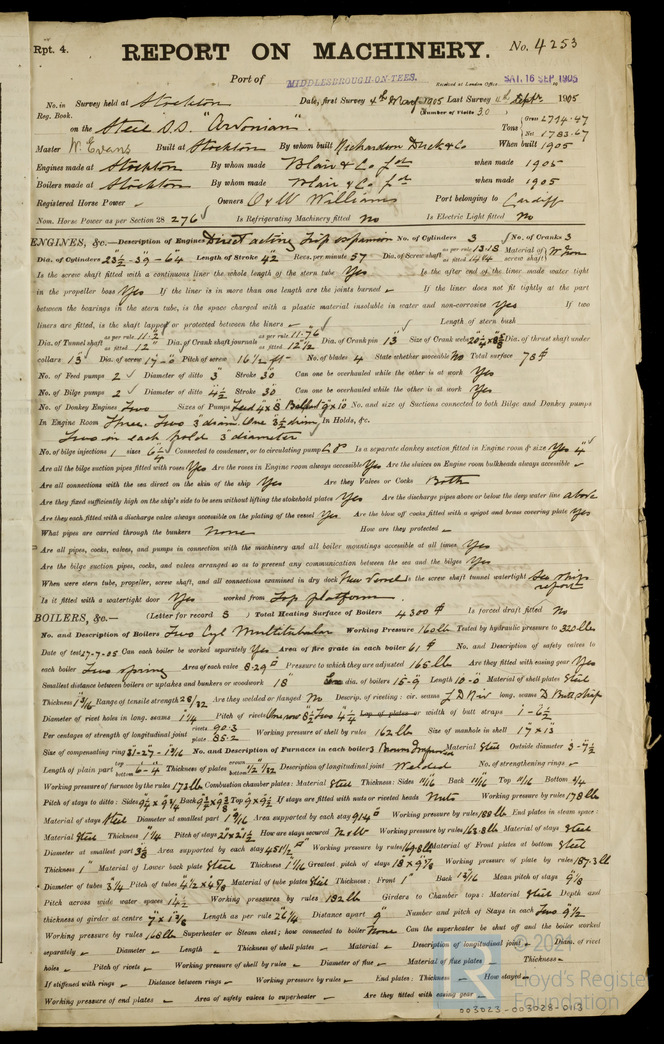 Rpt. 4. REPORT ON MACHINERY. No. 4253
Port of MIDDLESBROUGH-ON-TEES. Received at London Office SAT. 16 SEP 1905
No. in Survey held at Stockton Date, first Survey 4th May 1905 Last Survey 11th Septr 1905
Reg. Book. (Number of Visits 30)
on the Steel S.S. "Ardonian". Tons { Gross 2794.47
Net 1783.67
Master W. Evans Built at Stockton By whom built Richardson Duck & Co When built 1905
Engines made at Stockton By whom made Blair & Co Ltd when made 1905
Boilers made at Stockton By whom made Blair & Co Ltd when made 1905
Registered Horse Power - Owners O & W Williams Port belonging to Cardiff
Nom. Horse Power as per Section 28 276 Is Refrigerating Machinery fitted No Is Electric Light fitted No
ENGINES, &c.—Description of Engines Direct acting Trip expansion No. of Cylinders 3 No. of Cranks 3
Dia. of Cylinders 23½-39-64 Length of Stroke 42 Revs. per minute 57 Dia. of Screw shaft as per rule 13.18 Material of screw shaft W. Iron
Is the screw shaft fitted with a continuous liner the whole length of the stern tube Yes Is the after end of the liner made water tight
in the propeller boss Yes If the liner is in more than one length are the joints burned - If the liner does not fit tightly at the part
between the bearings in the stern tube, is the space charged with a plastic material insoluble in water and non-corrosive Yes If two
liners are fitted, is the shaft lapped or protected between the liners - Length of stern bush
Dia. of Tunnel shaft as per rule 11.2 as fitted 12 Dia. of Crank shaft journals as per rule 11.76 as fitted 12½ Dia. of Crank pin 13 Size of Crank webs Dia. of thrust shaft under
collars 13 Dia. of screw 17-0 Pitch of screw 16½ ft No. of blades 4 State whether moveable No Total surface 78
No. of Feed pumps 2 Diameter of ditto 3 Stroke 30 Can one be overhauled while the other is at work Yes
No. of Bilge pumps 2 Diameter of ditto 4½ Stroke 30 Can one be overhauled while the other is at work Yes
No. of Donkey Engines Two Sizes of Pumps Feed 4 x 8 Ballast 9 x 10 No. and size of Suctions connected to both Bilge and Donkey pumps
In Engine Room Three. Two 3" diam. One 3½ diam. In Holds, &c.
Two in each hold 3" diameter
No. of bilge injections 1 sizes Connected to condenser, or to circulating pump C.P. Is a separate donkey suction fitted in Engine room & size Yes 4"
Are all the bilge suction pipes fitted with roses Yes Are the roses in Engine room always accessible Yes Are the sluices on Engine room bulkheads always accessible -
Are all connections with the sea direct on the skin of the ship Yes Are they Valves or Cocks Both
Are they fixed sufficiently high on the ship's side to be seen without lifting the stokehold plates Yes Are the discharge pipes above or below the deep water line above
Are they each fitted with a discharge valve always accessible on the plating of the vessel Yes Are the blow off cocks fitted with a spigot and brass covering plate Yes
What pipes are carried through the bunkers None How are they protected -
Are all pipes, cocks, valves, and pumps in connection with the machinery and all boiler mountings accessible at all times Yes
Are the bilge suction pipes, cocks, and valves arranged so as to prevent any communication between the sea and the bilges Yes
When were stern tube, propeller, screw shaft, and all connections examined in dry dock New Vessel Is the screw shaft tunnel watertight See ship report
Is it fitted with a watertight door Yes worked from Top platform.
BOILERS, &c.— (Letter for record S) Total Heating Surface of Boilers 4300 Is forced draft fitted No
No. and Description of Boilers Two Cyl Multitubular Working Pressure 160 lb Tested by hydraulic pressure to 320 lb
Date of test 27-7-05 Can each boiler be worked separately Yes Area of fire grate in each boiler 61 No. and Description of safety valves to
each boiler Two spring Area of each valve 8.29 Pressure to which they are adjusted 165 lb Are they fitted with easing gear Yes
Smallest distance between boilers or uptakes and bunkers or woodwork 18" dia. of boilers 15-9 Length 10-0 Material of shell plates Steel
Thickness 1 3/16 Range of tensile strength 28/32 Are they welded or flanged No Descrip. of riveting: cir. seams L D Riv long. seams D. Butt Strap
Diameter of rivet holes in long. seams 1¼ Pitch of rivets Lap of plates or width of butt straps 1-6½
Per centages of strength of longitudinal joint rivets 90.3 plate 85.2 Working pressure of shell by rules 162 lb Size of manhole in shell 17 x 13
Size of compensating ring No. and Description of Furnaces in each boiler 3 Material Steel Outside diameter 3-7½
Length of plain part top bottom 6-4 Thickness of plates crown bottom Description of longitudinal joint Welded No. of strengthening rings -
Working pressure of furnace by the rules 173 lb Combustion chamber plates: Material Steel Thickness: Sides 11/16 Back 11/16 Top 11/16 Bottom ¾
Pitch of stays to ditto: Sides 9¼ x 9¾ Back Top 9 x 9½ If stays are fitted with nuts or riveted heads Nuts Working pressure by rules 178 lb
Material of stays Steel Diameter at smallest part 1 9/16 Area supported by each stay 91.4 Working pressure by rules 188 lb End plates in steam space:
Material Steel Thickness 1¼ Pitch of stays 21 x 21½ How are stays secured N & W Working pressure by rules 163.8 lb Material of stays Steel
Diameter at smallest part Area supported by each stay 451½ Working pressure by rules Material of Front plates at bottom Steel
Thickness 1" Material of Lower back plate Steel Thickness Greatest pitch of stays Working pressure of plate by rules 187.3 lb
Diameter of tubes 3¼ Pitch of tubes 4½ x 4⅝ Material of tube plates Steel Thickness: Front 1" Back 13/16 Mean pitch of stays 9⅛
Pitch across wide water spaces 14½ Working pressures by rules 182 lb Girders to Chamber tops: Material Steel Depth and
thickness of girder at centre Length as per rule 26¼ Distance apart 9 Number and pitch of Stays in each Two 9½
Working pressure by rules 168 lb Superheater or Steam chest; how connected to boiler None Can the superheater be shut off and the boiler worked
separately - Diameter - Length - Thickness of shell plates - Material - Description of longitudinal joint - Diam. of rivet
holes - Pitch of rivets - Working pressure of shell by rules - Diameter of flue - Material of flue plates - Thickness -
If stiffened with rings - Distance between rings - Working pressure by rules - End plates: Thickness - How stayed -
Working pressure of end plates - Area of safety valves to superheater - Are they fitted with easing gear -
© 2021
Lloyd's Register
Foundation
003023-003028-0113